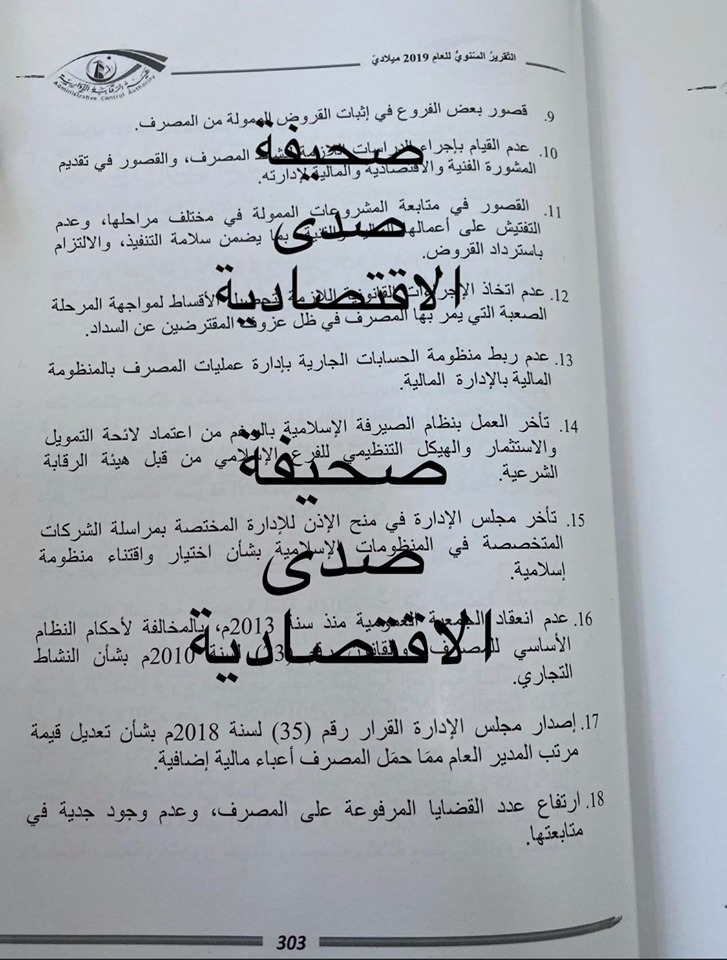 التقرير السنوي للعام 2019 ميلادي
هيئة الرقابة الإدارية
Administrative Control Authority
9. قصور بعض الفروع في إثبات القروض الممولة من المصرف.
10. عدم القيام بإجراء الدراسات اللازمة لنشاط المصرف، والقصور في تقديم
المشورة الفنية والاقتصادية والمالية لإدارته.
11. القصور في متابعة المشروعات الممولة في مختلف مراحلها، وعدم
التفتيش على أعمالها بما يضمن سلامة التنفيذ، والالتزام
باسترداد القروض.
12. عدم اتخاذ الإجراءات القانونية اللازمة لتحصيل الأقساط لمواجهة المرحلة
الصعبة التي يمر بها المصرف في ظل عزوف المقترضين عن السداد.
13. عدم ربط منظومة الحسابات الجارية بإدارة عمليات المصرف بالمنظومة
المالية بالإدارة المالية.
14. تأخر العمل بنظام الصيرفة الإسلامية بالرغم من اعتماد لائحة التمويل
والاستثمار والهيكل التنظيمي للفرع الإسلامي من قبل هيئة الرقابة
الشرعية.
15. تأخر مجلس الإدارة في منح الإذن للإدارة المختصة بمراسلة الشركات
المتخصصة في المنظومات الإسلامية بشأن اختيار واقتناء منظومة
إسلامية.
16. عدم انعقاد الجمعية العمومية منذ سنة 2013م، بالمخالفة لأحكام النظام
الأساسي للمصرف، والقانون رقم (23) لسنة 2010م بشأن النشاط
التجاري.
17. إصدار مجلس الإدارة القرار رقم (35) لسنة 2018م بشأن تعديل قيمة
مرتب المدير العام ممّا حمّل المصرف أعباء مالية إضافية.
18. ارتفاع عدد القضايا المرفوعة على المصرف، وعدم وجود جدية في
متابعتها.
303
صحيفة
صدى
الاقتصادية
صحيفة
صدى
الاقتصادية